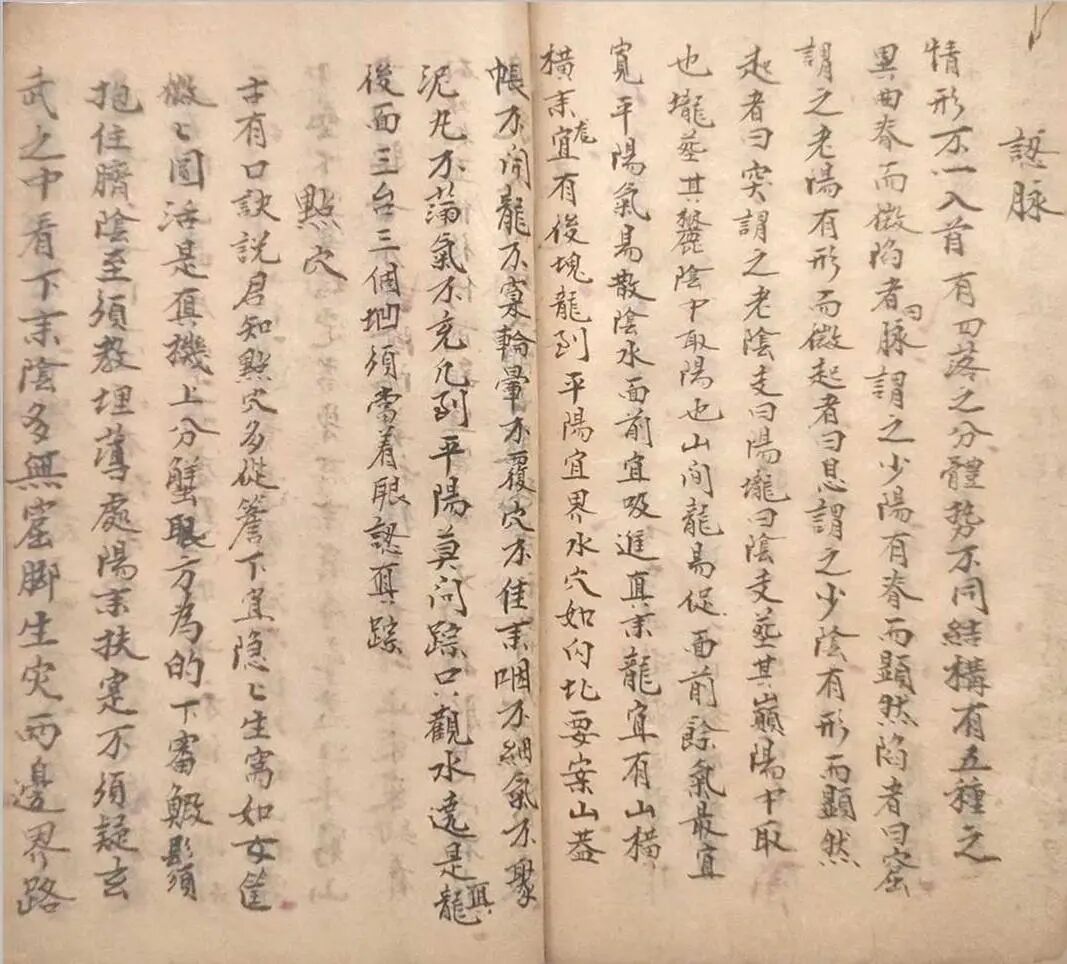 認脉
情形不一入首有四落之分體势不同結構有五種之
異曲脊而微陷者曰脉謂之少陽有脊而顕然陷者曰窟
謂之老陽有形而微起者曰息謂之少陰有形而顕然
起者曰突謂之老陰支曰陽壠曰陰支塟其巔陽中取
也壠塟其麓陰中取陽也山間龍易促面前餘氣最宜
寛平陽氣易散陰水面前宜吸進真氣龍宜有山横
横來龙宜有後塊龍到平陽宜界水穴如内圠要案山葢
帳不開龍不窠輪暈不覆穴不佳来咽不細氣不聚
泥丸不蒲氣不充凡到平陽莫问踪只觀水遶是真龍
後面三台三個㘭須當着眼認真踪
點穴
古有口訣説君知點穴多從簷下宜隐〻生窩如女䇶
微〻圓活是真機上分蟹眼方為的下審鰕鬚
抱住臍陰至須教埋薄處陽来扶寔不須疑玄
武之中看下来陰多無窟脚生灾两邊界路